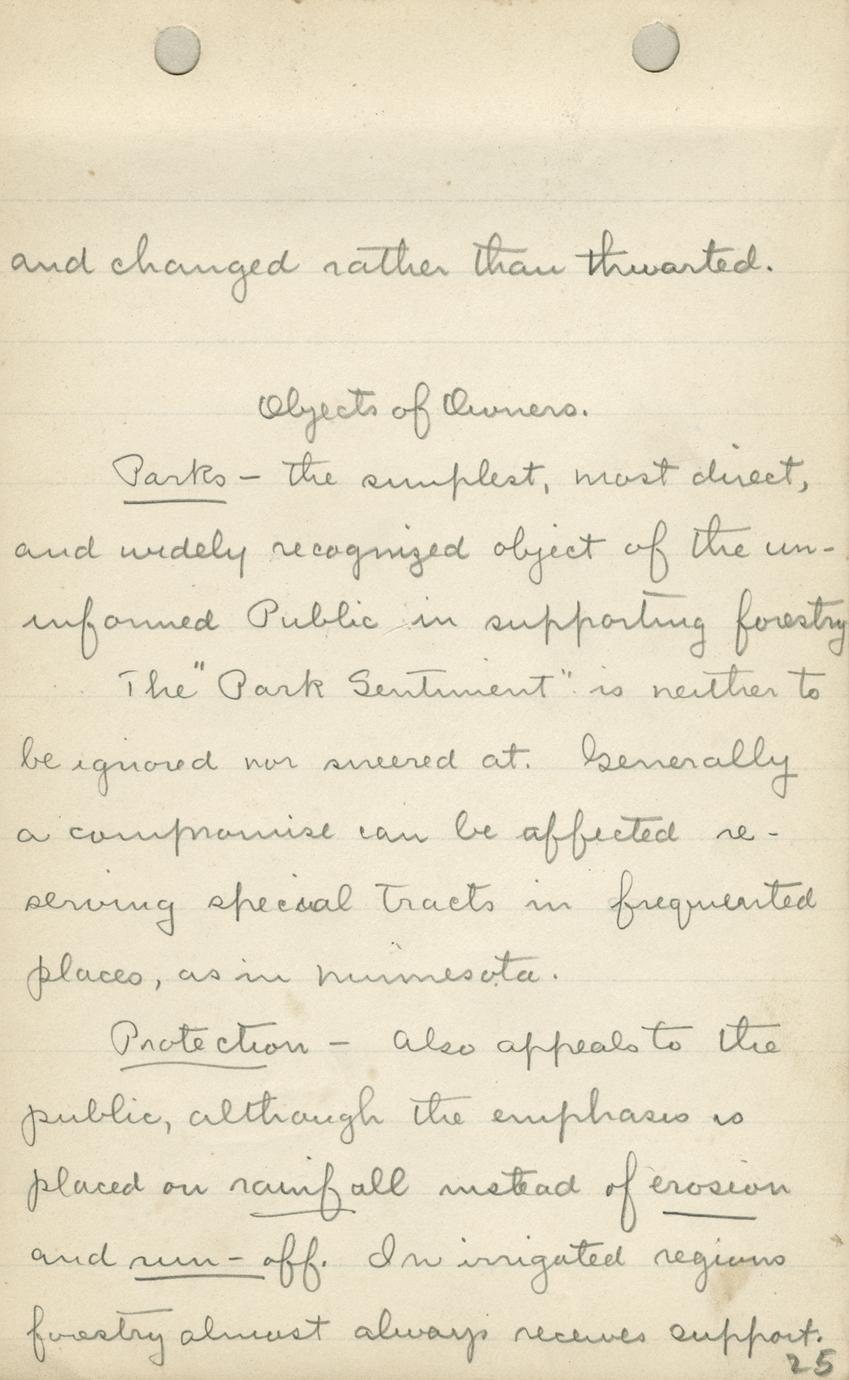 and changed rather than thwarted.
Objects of Owners.
Parks - the simplest, most direct,
and widely recognized object of the un-
informed Public in supporting forestry
The "Park Sentiment" is neither to
be ignored nor sneered at. Generally
a compromise can be affected re-
serving special tracts in frequented
places, as in Minnesota.
Protection - Also appeals to the
public, although the emphasis is
placed on rainfall instead of erosion
and run-off. In irrigated regions
forestry almost always receives support.
25